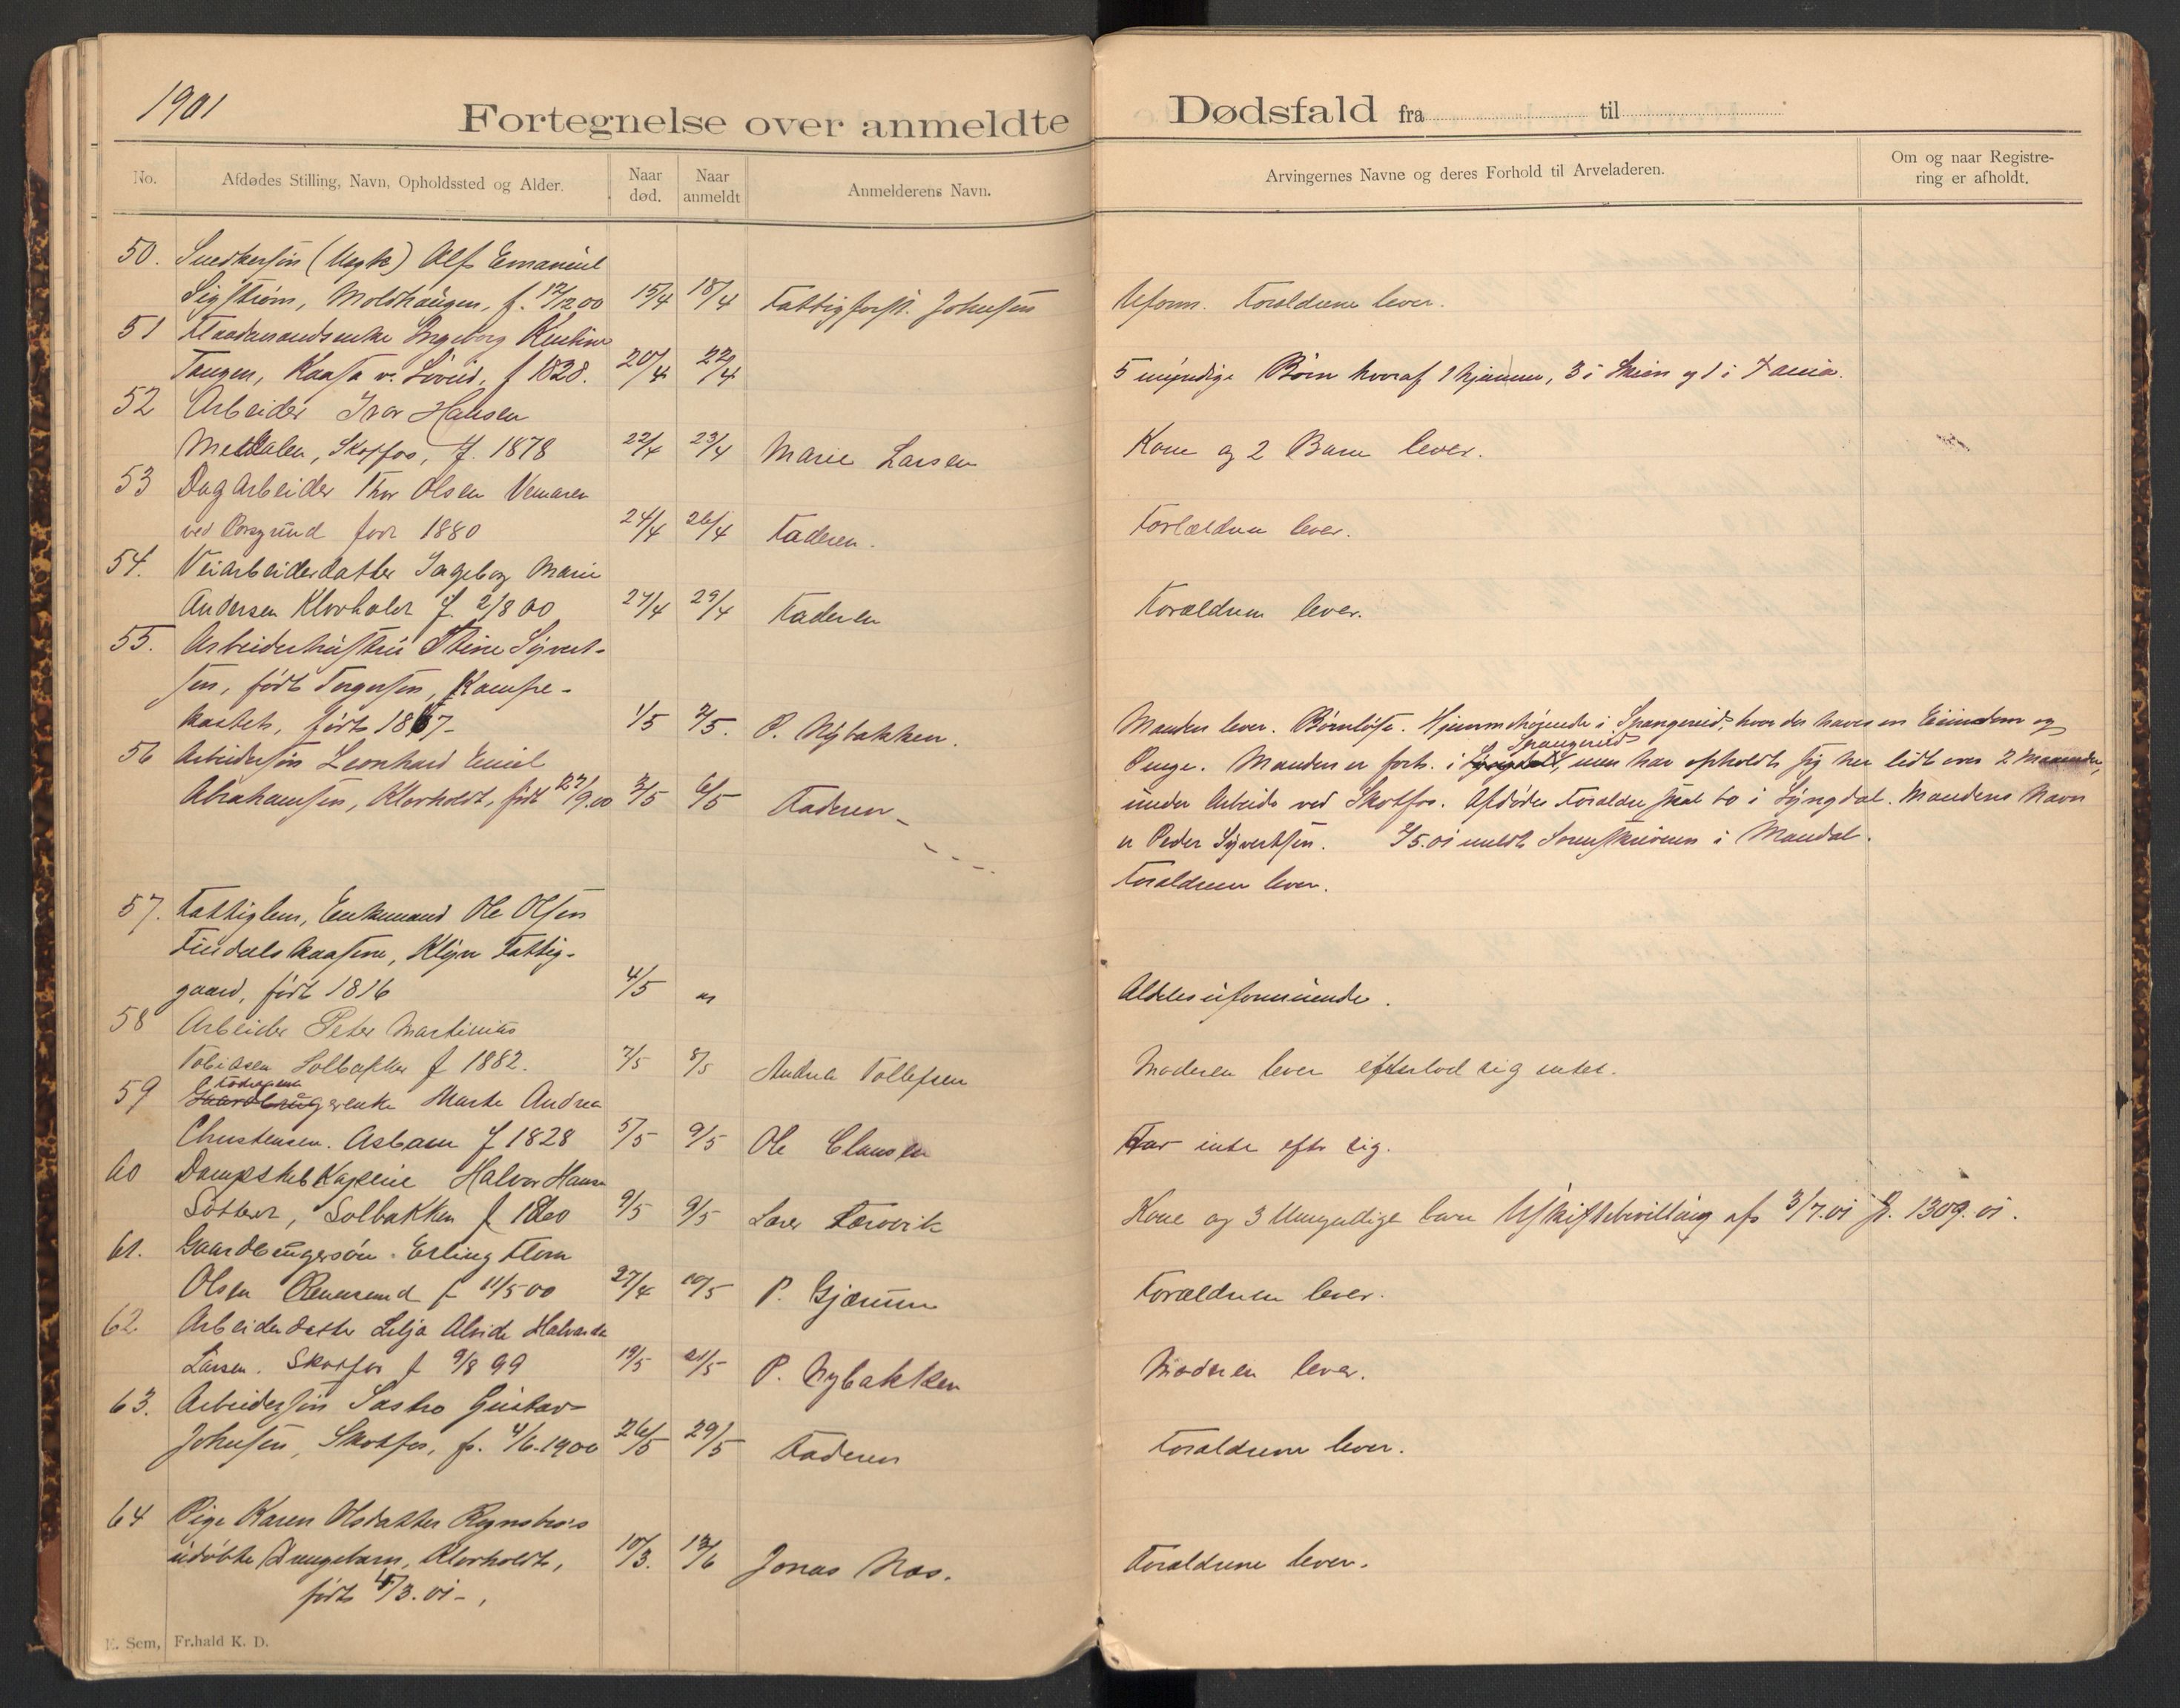 1901
Fortegnelse over anmeldte Dødsfald fra til
No.
Afdødes Stilling, Navn, Opholdssted og Alder.
Naar død.
Naar anmeldt
Anmelderens Navn.
Arvingernes Navne og deres Forhold til Arveladeren.
Om og naar Registre-
ring er afholdt.
50. Snedkersøn (Uægte) Alf Emanuel
Sigstrøm, Moldhaugen, f. 12/12 00 15/4 18/4 Fattigforst. Johnsen Uform. Forældrene lever.
51 Ingeborg Kirstine
Tangen, Kaasa v. Løveid, f 1828. 20/4 22/4 5 myndige Børn hvoraf 1 hjemme, 3 i Skien og 1 i
52 Arbeider Ivar Hansen
Meldalen, Skotfos, f. 1878 22/4 23/4 Marie Larsen Kone og 2 Barn lever.
53 Dagarbeider Thor Olsen
ved Porsgrund født 1880 24/4 26/4 Faderen. Forældrene lever.
54. Veiarbeiderdatter Ingeborg Marie
Andersen Klovholdt f 2/8 00 27/4 29/4 Faderen Forældrene lever.
55. Arbeiderhustru Stine Syvert-
sen, født Torgersen, Kampe-
kastet, født 1867- 1/5 2/5. P. Nybakken. Manden lever. Barnløse. Hjemmehørende i Spangereid, hvor der haves en Eiendom og
Penge. Manden er fort. i Spangereid, men har opholdt sig her lidt over 2 Maaneder,
under Arbeide ved Skotfos. Afdødes Forældre skal bo i Lyngdal. Mandens Navn
er Peder Syvertsen. 2/5.01 meldt Sorenskriveren i Mandal.
56 Arbeidersøn Leonhard Emil
Abrahamsen, Klovholdt, født 27/9.00 3/5 6/5 Faderen Forældrene lever.
57. Fattiglem, Enkemand Ole Olsen
Findalskaasene, Klyve Fattig-
gaard, født 1816 4/5 " Aldeles uformuende.
58 Arbeider Peter Martinius
Tobiasen Solbakken f 1882. 7/5 8/5 Andrea Tollefsen Moderen lever efterlod sig intet.
59 Gaardbrugerenke Marte Andrea
Christensen. Asbaen f 1828 5/5 9/5 Ole Clausen Har intet efter sig.
60 Halvor Hansen
Solbakken f 1860 9/5 9/5 Lars Kone og 3 Umyndige barn Uskiftebevilling af 3/7.01 Jr. 1309.01.
61. Gaardbrugersøn Erling
Olsen f 11/5 00 27/4 10/5 P. Gjærum Forældrene lever.
62. Arbeiderdatter Lilja Alvide Halvarda
Larsen. Skotfos f 9/8 99 19/5 21/5 P. Nybakken Moderen lever.
63. Arbeidersøn Gustav
Johnsen, Skotfos, f. 4/6.1900 26/5 29/5 Faderen Forældrene lever.
64 Pige Karen Olsdatter
udøbte Drengebarn, Klovholdt,
født 4/3.01-, 10/3. 12/6 Jonas Næs. Forældrene lever.
E. Sem, Fr.hald K. D.